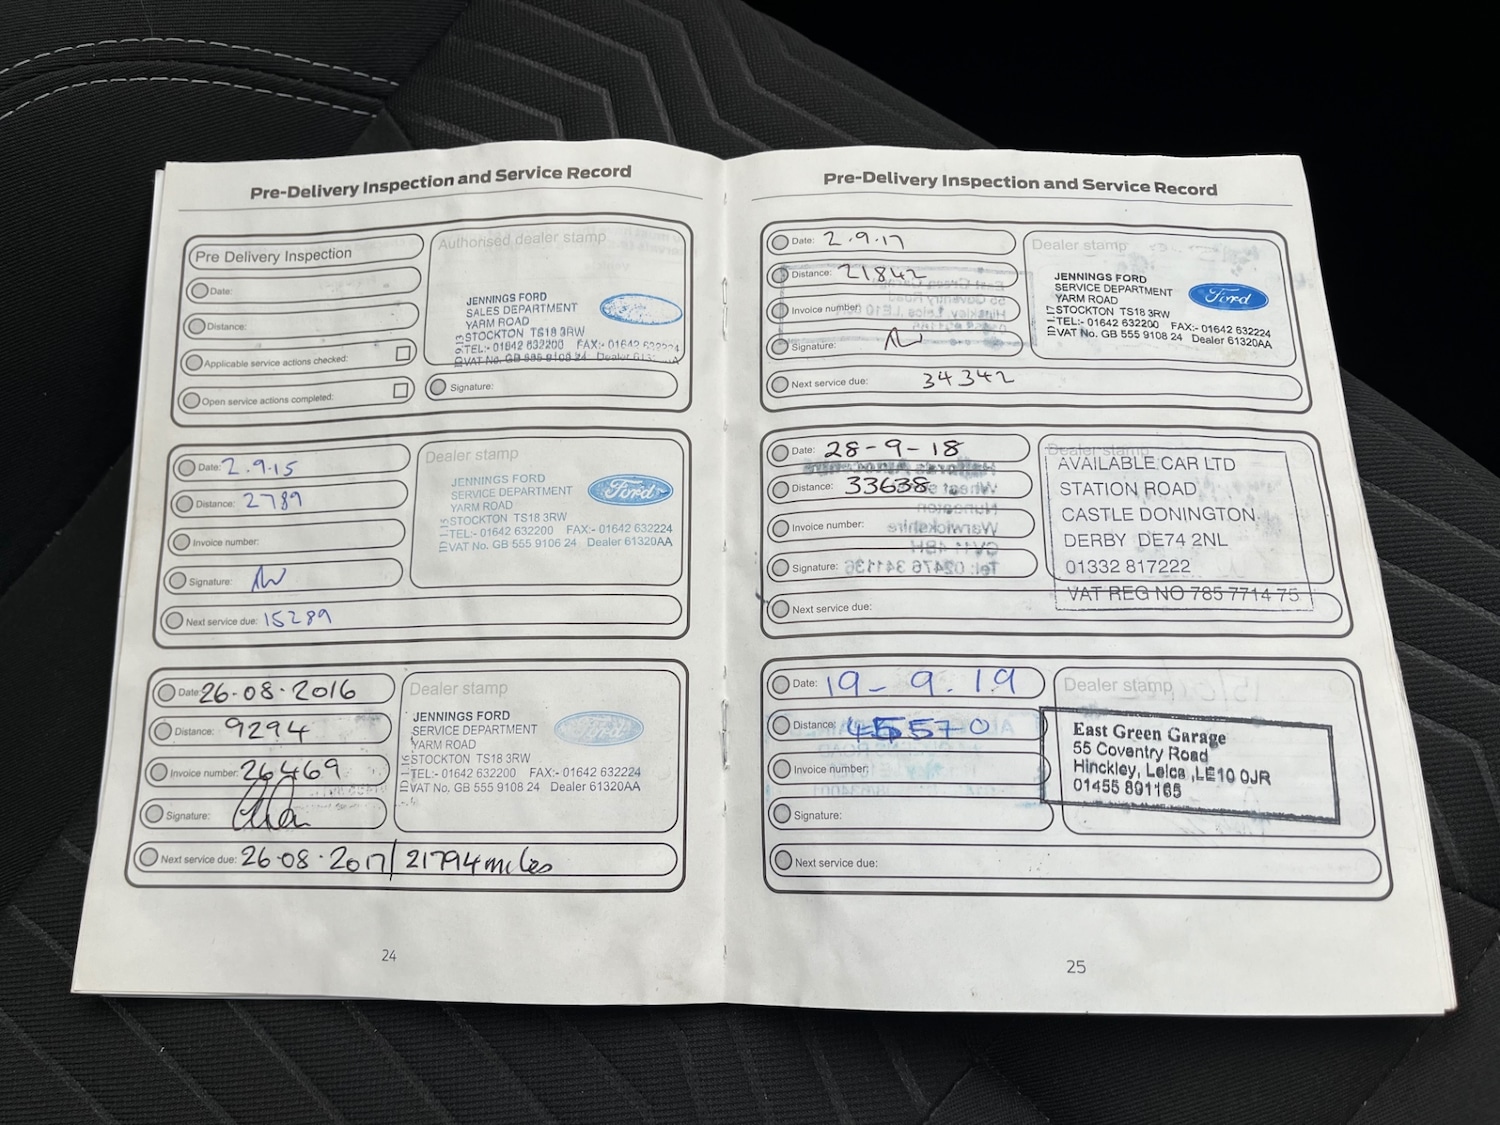 Pre-Delivery Inspection and Service Record
Pre Delivery Inspection
Date:
Distance:
Applicable service actions checked:
Open service actions completed:
Authorised dealer stamp
JENNINGS FORD
SALES DEPARTMENT
YARM ROAD
STOCKTON TS18 3RW
TEL:- 01642 632200 FAX:- 01642 632224
VAT No. GB 555 9108 24 Dealer
Signature:
Date: 2.9.15
Distance: 2789
Invoice number:
Signature:
Next service due: 15289
Dealer stamp
JENNINGS FORD
SERVICE DEPARTMENT
YARM ROAD
STOCKTON TS18 3RW
TEL:- 01642 632200 FAX:- 01642 632224
VAT No. GB 555 9106 24 Dealer 61320AA
Ford
Date: 26-08-2016
Distance: 9294
Invoice number: 26469
Signature:
Next service due: 26-08-2017/ 21794 miles
Dealer stamp
JENNINGS FORD
SERVICE DEPARTMENT
YARM ROAD
STOCKTON TS18 3RW
TEL:- 01642 632200 FAX:- 01642 632224
VAT No. GB 555 9108 24 Dealer 61320AA
Ford
24
Pre-Delivery Inspection and Service Record
Date: 2.9.17
Distance: 21842
Invoice number:
Signature:
Next service due: 34342
Dealer stamp
JENNINGS FORD
SERVICE DEPARTMENT
YARM ROAD
STOCKTON TS18 3RW
TEL:- 01642 632200 FAX:- 01642 632224
VAT No. GB 555 9108 24 Dealer 61320AA
Ford
Date: 28-9-18
Distance: 33638
Invoice number:
Signature:
Next service due:
Dealer stamp
AVAILABLE CAR LTD
STATION ROAD
CASTLE DONINGTON
DERBY DE74 2NL
01332 817222
VAT REG NO 785 7714 75
Date: 19-9.19
Distance: 45570
Invoice number:
Signature:
Next service due:
Dealer stamp
East Green Garage
55 Coventry Road
Hinckley, Leics ,LE10 0JR
01455 891165
25